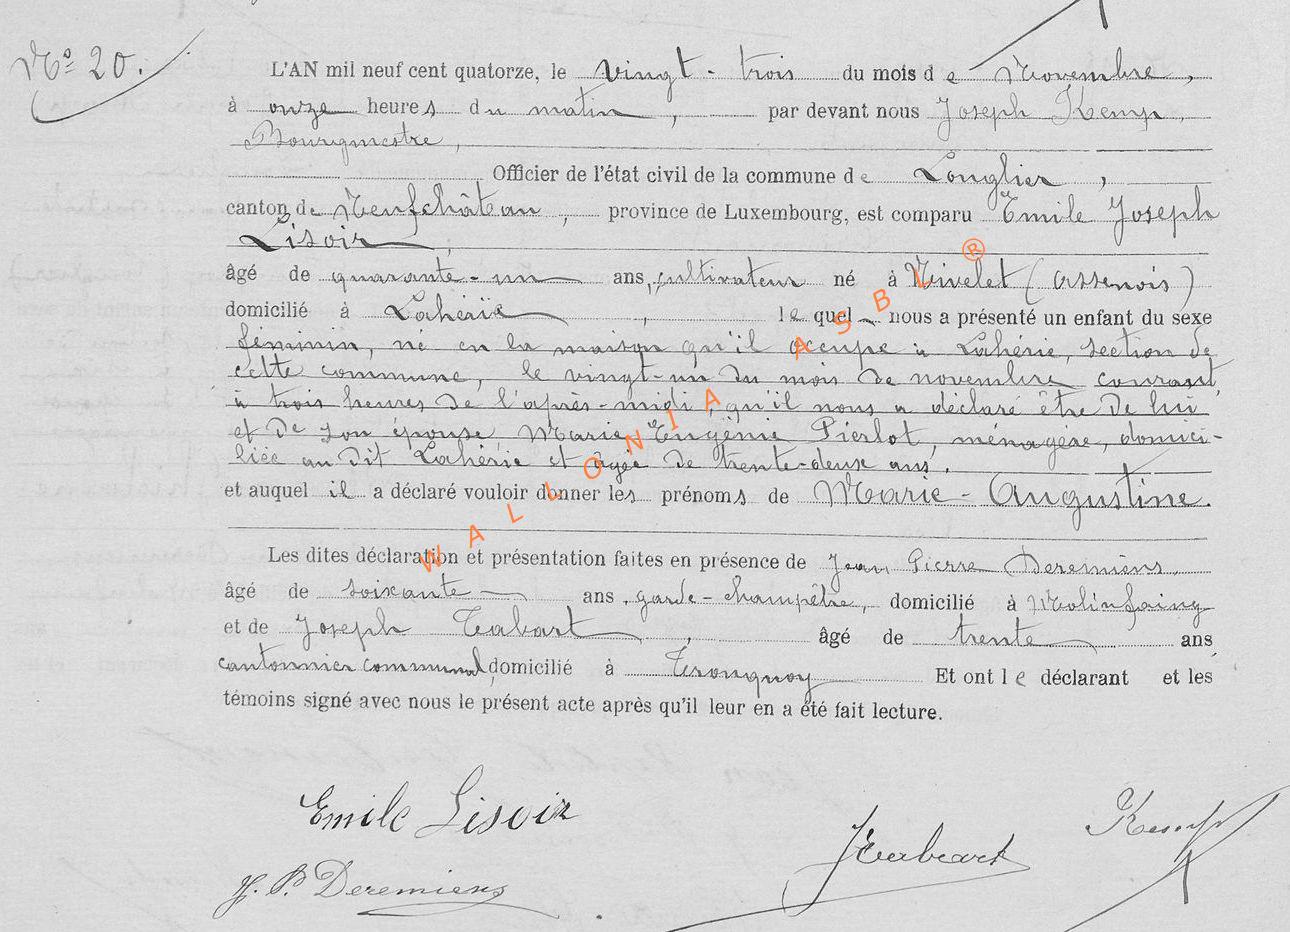 Nº 20.
L'AN mil neuf cent quatorze, le vingt-trois du mois de Novembre,
à onze heures du matin, par devant nous Joseph Kemp,
Bourgmestre,
Officier de l'état civil de la commune de Longlier,
canton de Neufchâteau, province de Luxembourg, est comparu Emile Joseph
Lisoir,
âgé de quarante-un ans, cultivateur né à Nivelet (Assenois)
domicilié à Lahérie, lequel nous a présenté un enfant du sexe
féminin, né en la maison qu'il occupe à Lahérie, section de
cette commune, le vingt-un du mois de novembre courant,
à trois heures de l'après-midi, qu'il nous a déclaré être de lui
et de son épouse, Marie Eugénie Pierlot, ménagère, domici-
liée au dit Lahérie et âgée de trente-deux ans.
et auquel il a déclaré vouloir donner les prénoms de Marie-Augustine.
Les dites déclaration et présentation faites en présence de Jean Pierre Deremiens
âgé de soixante ans, garde-champêtre, domicilié à Molinfaing
et de Joseph Tabart, âgé de trente ans
cantonnier communal, domicilié à Tronquoy Et ont le déclarant et les
témoins signé avec nous le présent acte après qu'il leur en a été fait lecture.
Emile Lisoir
J. P. Deremiens
JTabart
Kemp
WALLONIA ASBL ®